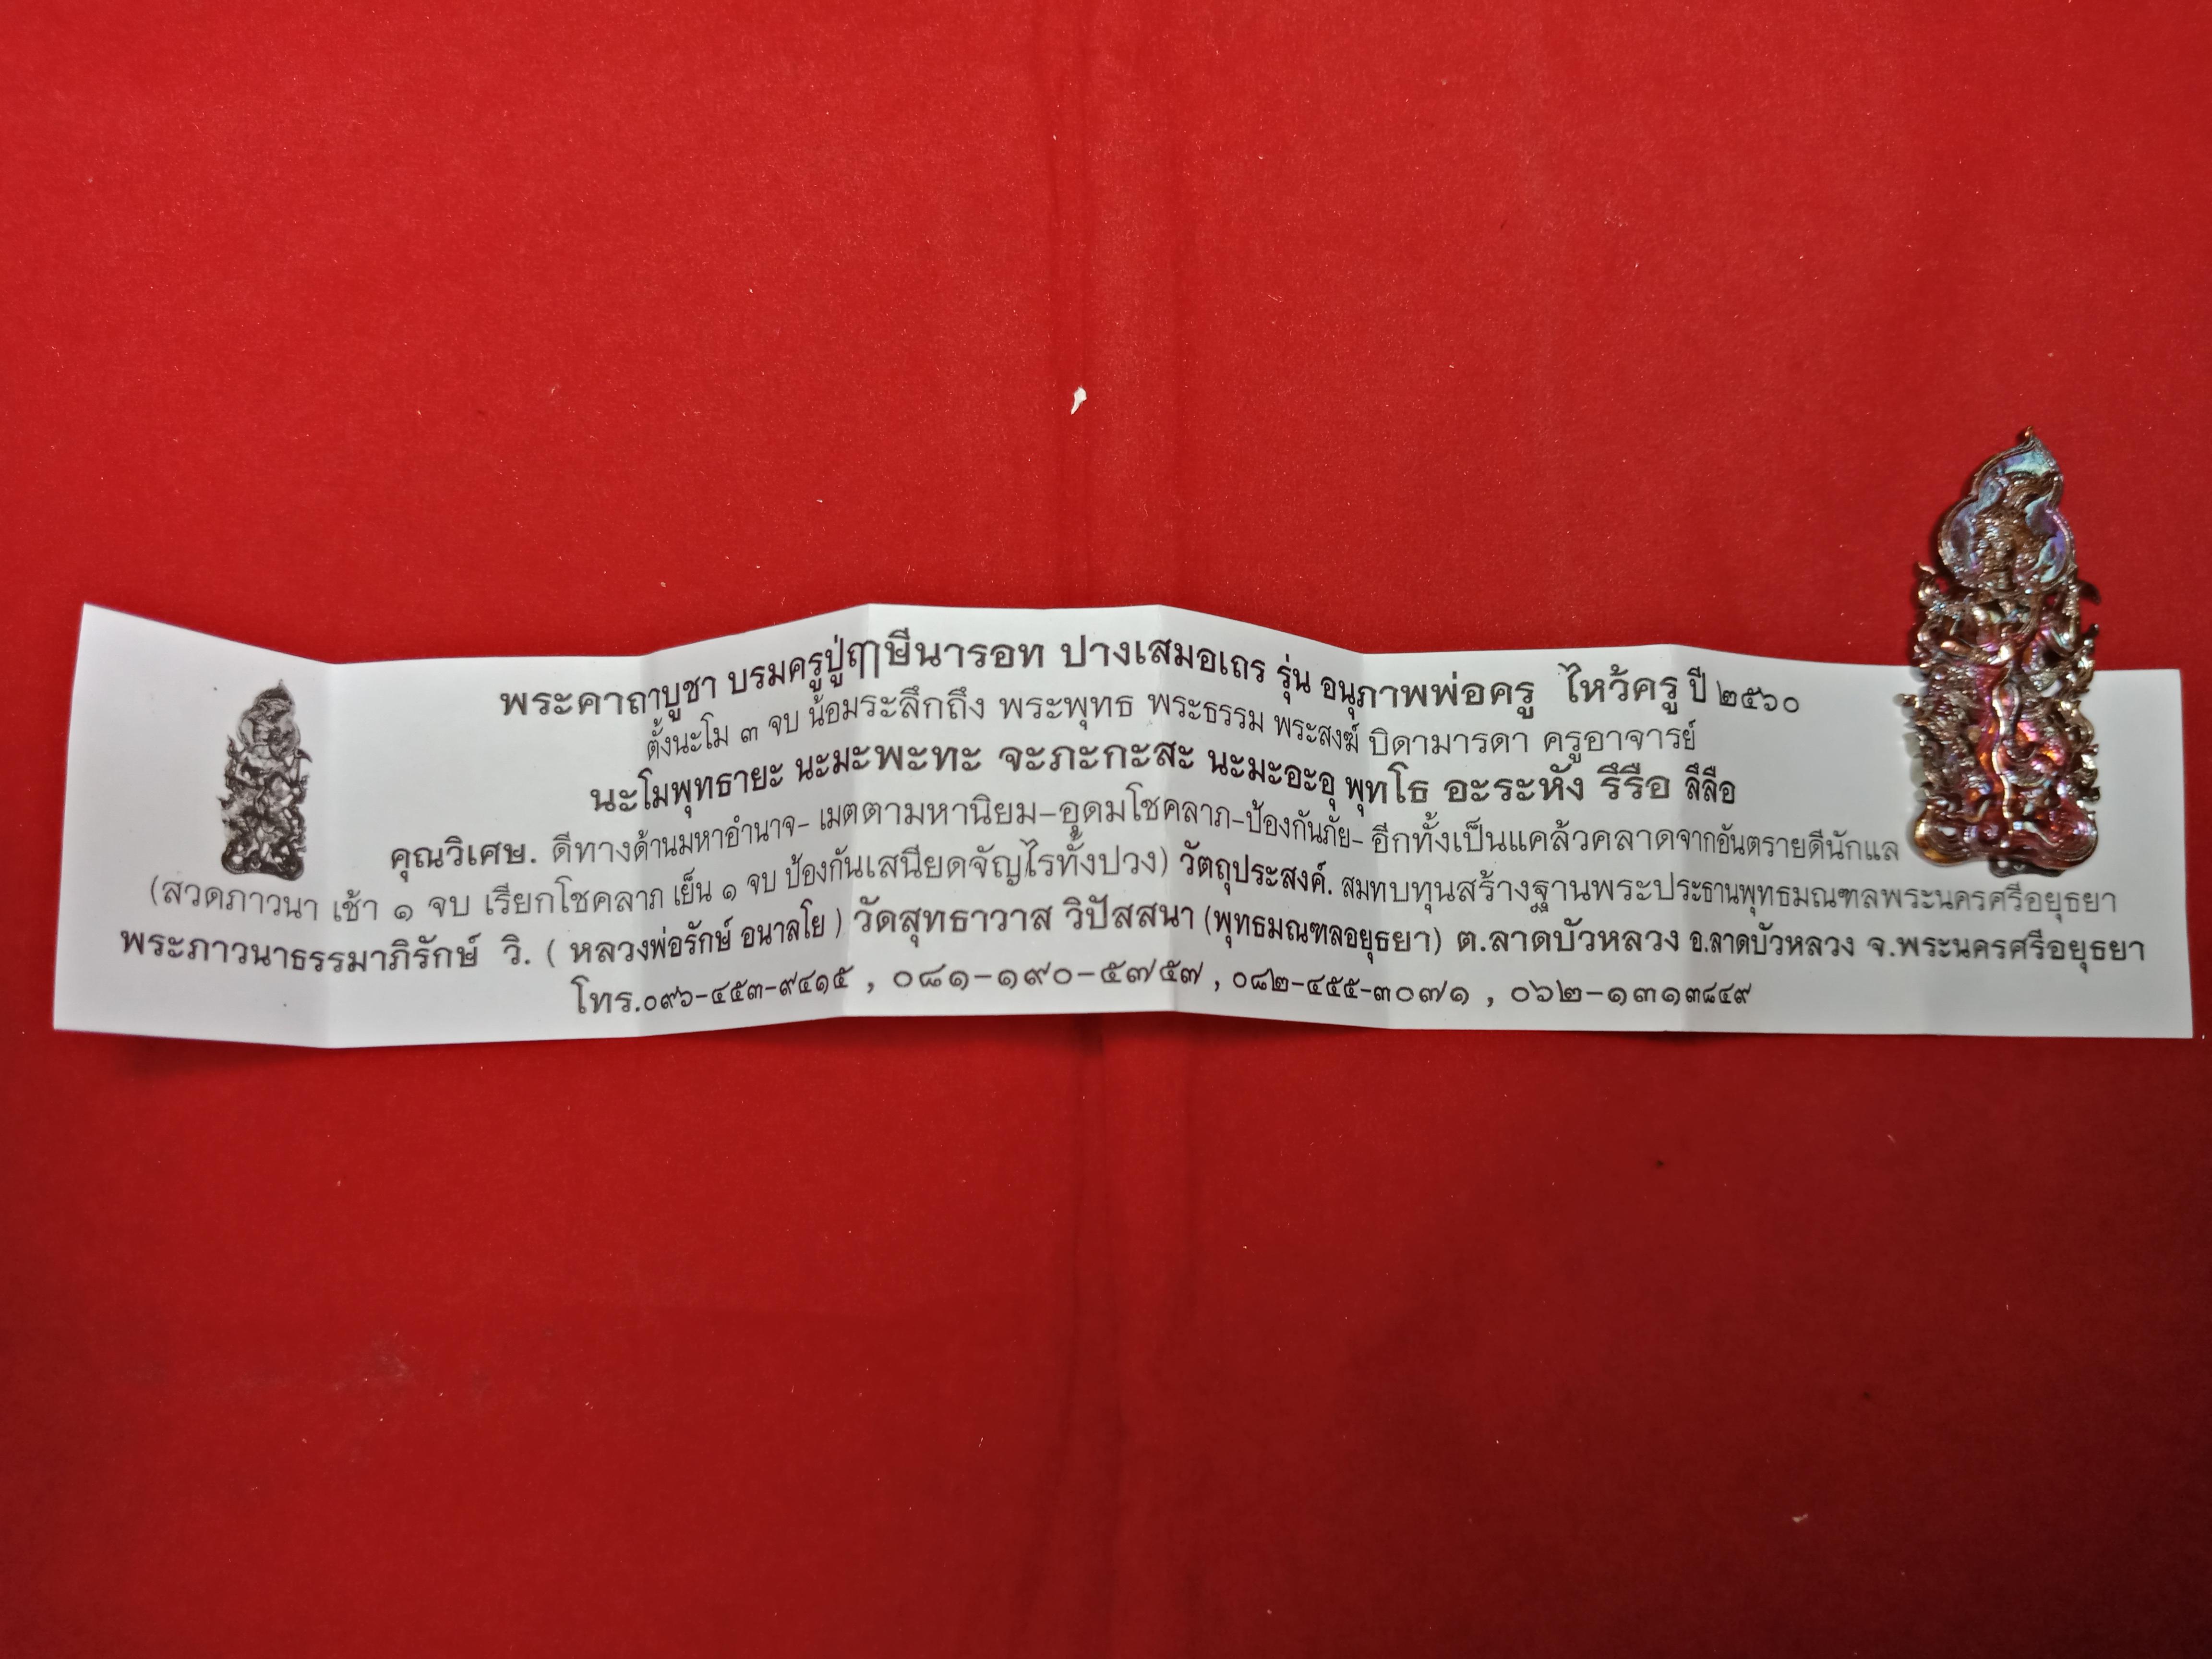 พระคาถาบูชา บรมครูปู่ฤๅษีนารอท ปางเสมอเถร รุ่น อนุภาพพ่อครู ไหว้ครู ปี ๒๕๖๐
ตั้งนะโม ๓ จบ น้อมระลึกถึง พระพุทธ พระธรรม พระสงฆ์ บิดามารดา ครูอาจารย์
นะโมพุทธายะ นะมะพะทะ จะภะกะสะ นะมะอะอุ พุทโธ อะระหัง รึรือ ลึลือ
คุณวิเศษ. ดีทางด้านมหาอำนาจ- เมตตามหานิยม-อุดมโชคลาภ-ป้องกันภัย- อีกทั้งเป็นแคล้วคลาดจากอันตรายดีนักแล
(สวดภาวนา เช้า ๑ จบ เรียกโชคลาภ เย็น ๑ จบ ป้องกันเสนียดจัญไรทั้งปวง) วัตถุประสงค์. สมทบทุนสร้างฐานพระประธานพุทธมณฑลพระนครศรีอยุธยา
พระภาวนาธรรมาภิรักษ์ วิ. ( หลวงพ่อรักษ์ อนาลโย ) วัดสุทธาวาส วิปัสสนา (พุทธมณฑลอยุธยา) ต.ลาดบัวหลวง อ.ลาดบัวหลวง จ.พระนครศรีอยุธยา
โทร.๐๙๖-๔๕๓-๙๔๑๕ , ๐๘๑-๑๙๐-๕๗๕๗ , ๐๘๒-๔๕๕-๓๐๗๑ , ๐๖๒-๑๓๑๓๘๔๙